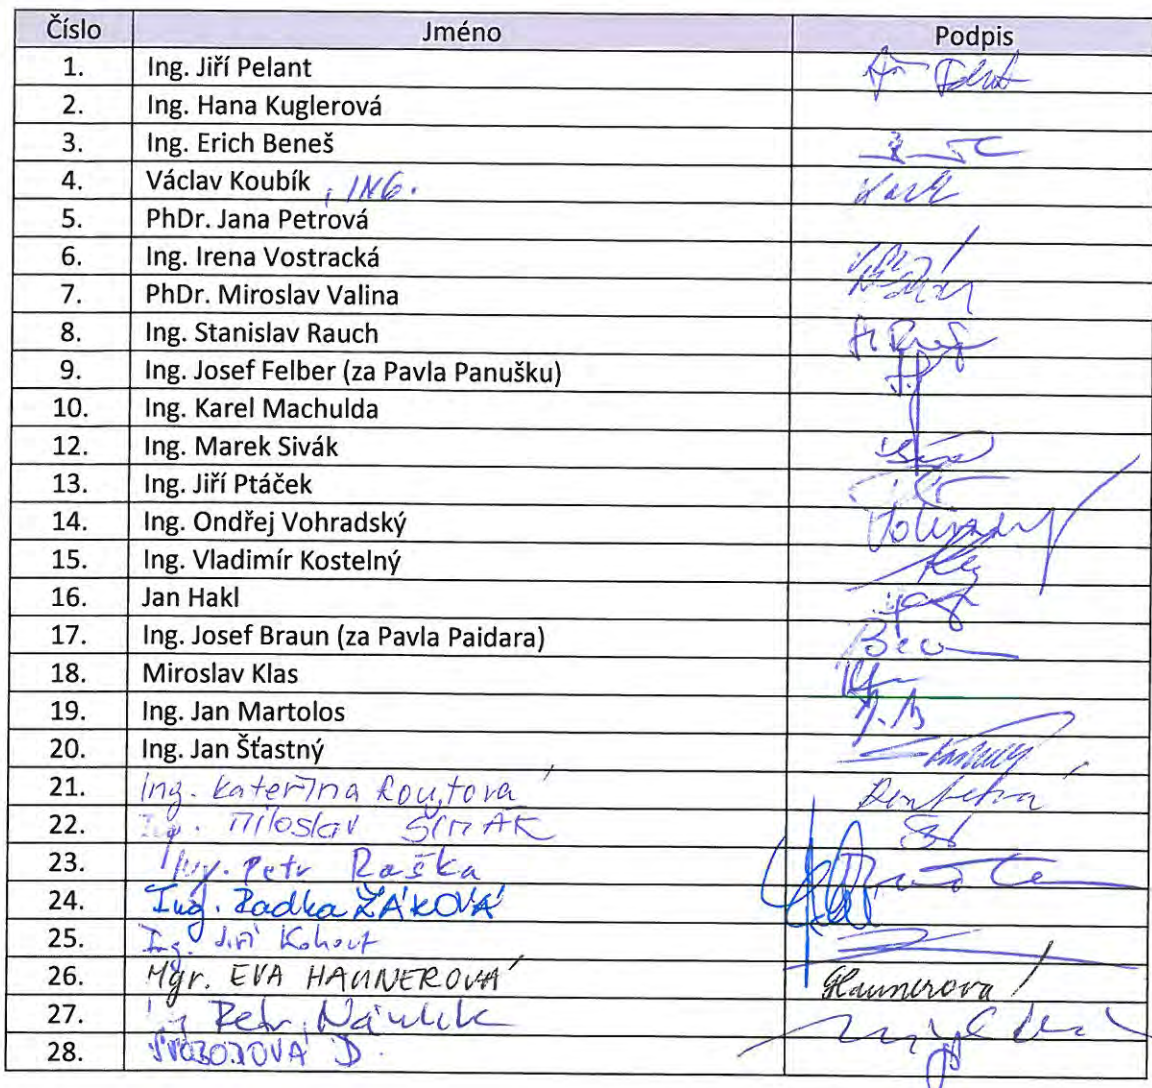 Číslo Jméno Podpis
1. Ing. Jiří Pelant
2. Ing. Hana Kuglerová
3. Ing. Erich Beneš
4. Václav Koubík , ING.
5. PhDr. Jana Petrová
6. Ing. Irena Vostracká
7. PhDr. Miroslav Valina
8. Ing. Stanislav Rauch
9. Ing. Josef Felber (za Pavla Panušku)
10. Ing. Karel Machulda
12. Ing. Marek Sivák
13. Ing. Jiří Ptáček
14. Ing. Ondřej Vohradský
15. Ing. Vladimír Kostelný
16. Jan Hakl
17. Ing. Josef Braun (za Pavla Paidara)
18. Miroslav Klas
19. Ing. Jan Martolos
20. Ing. Jan Šťastný
21. Ing. Kateřina
22. Ing. Miloslav ŠIMÁK
23. Ing. Petr Raška
24. Ing. Radka ŽÁKOVÁ
25. Ing. Jiří Kohout
26. Mgr. EVA HAUNEROVÁ Haunerová
27. Ing Petr
28. SVOBODOVÁ D.